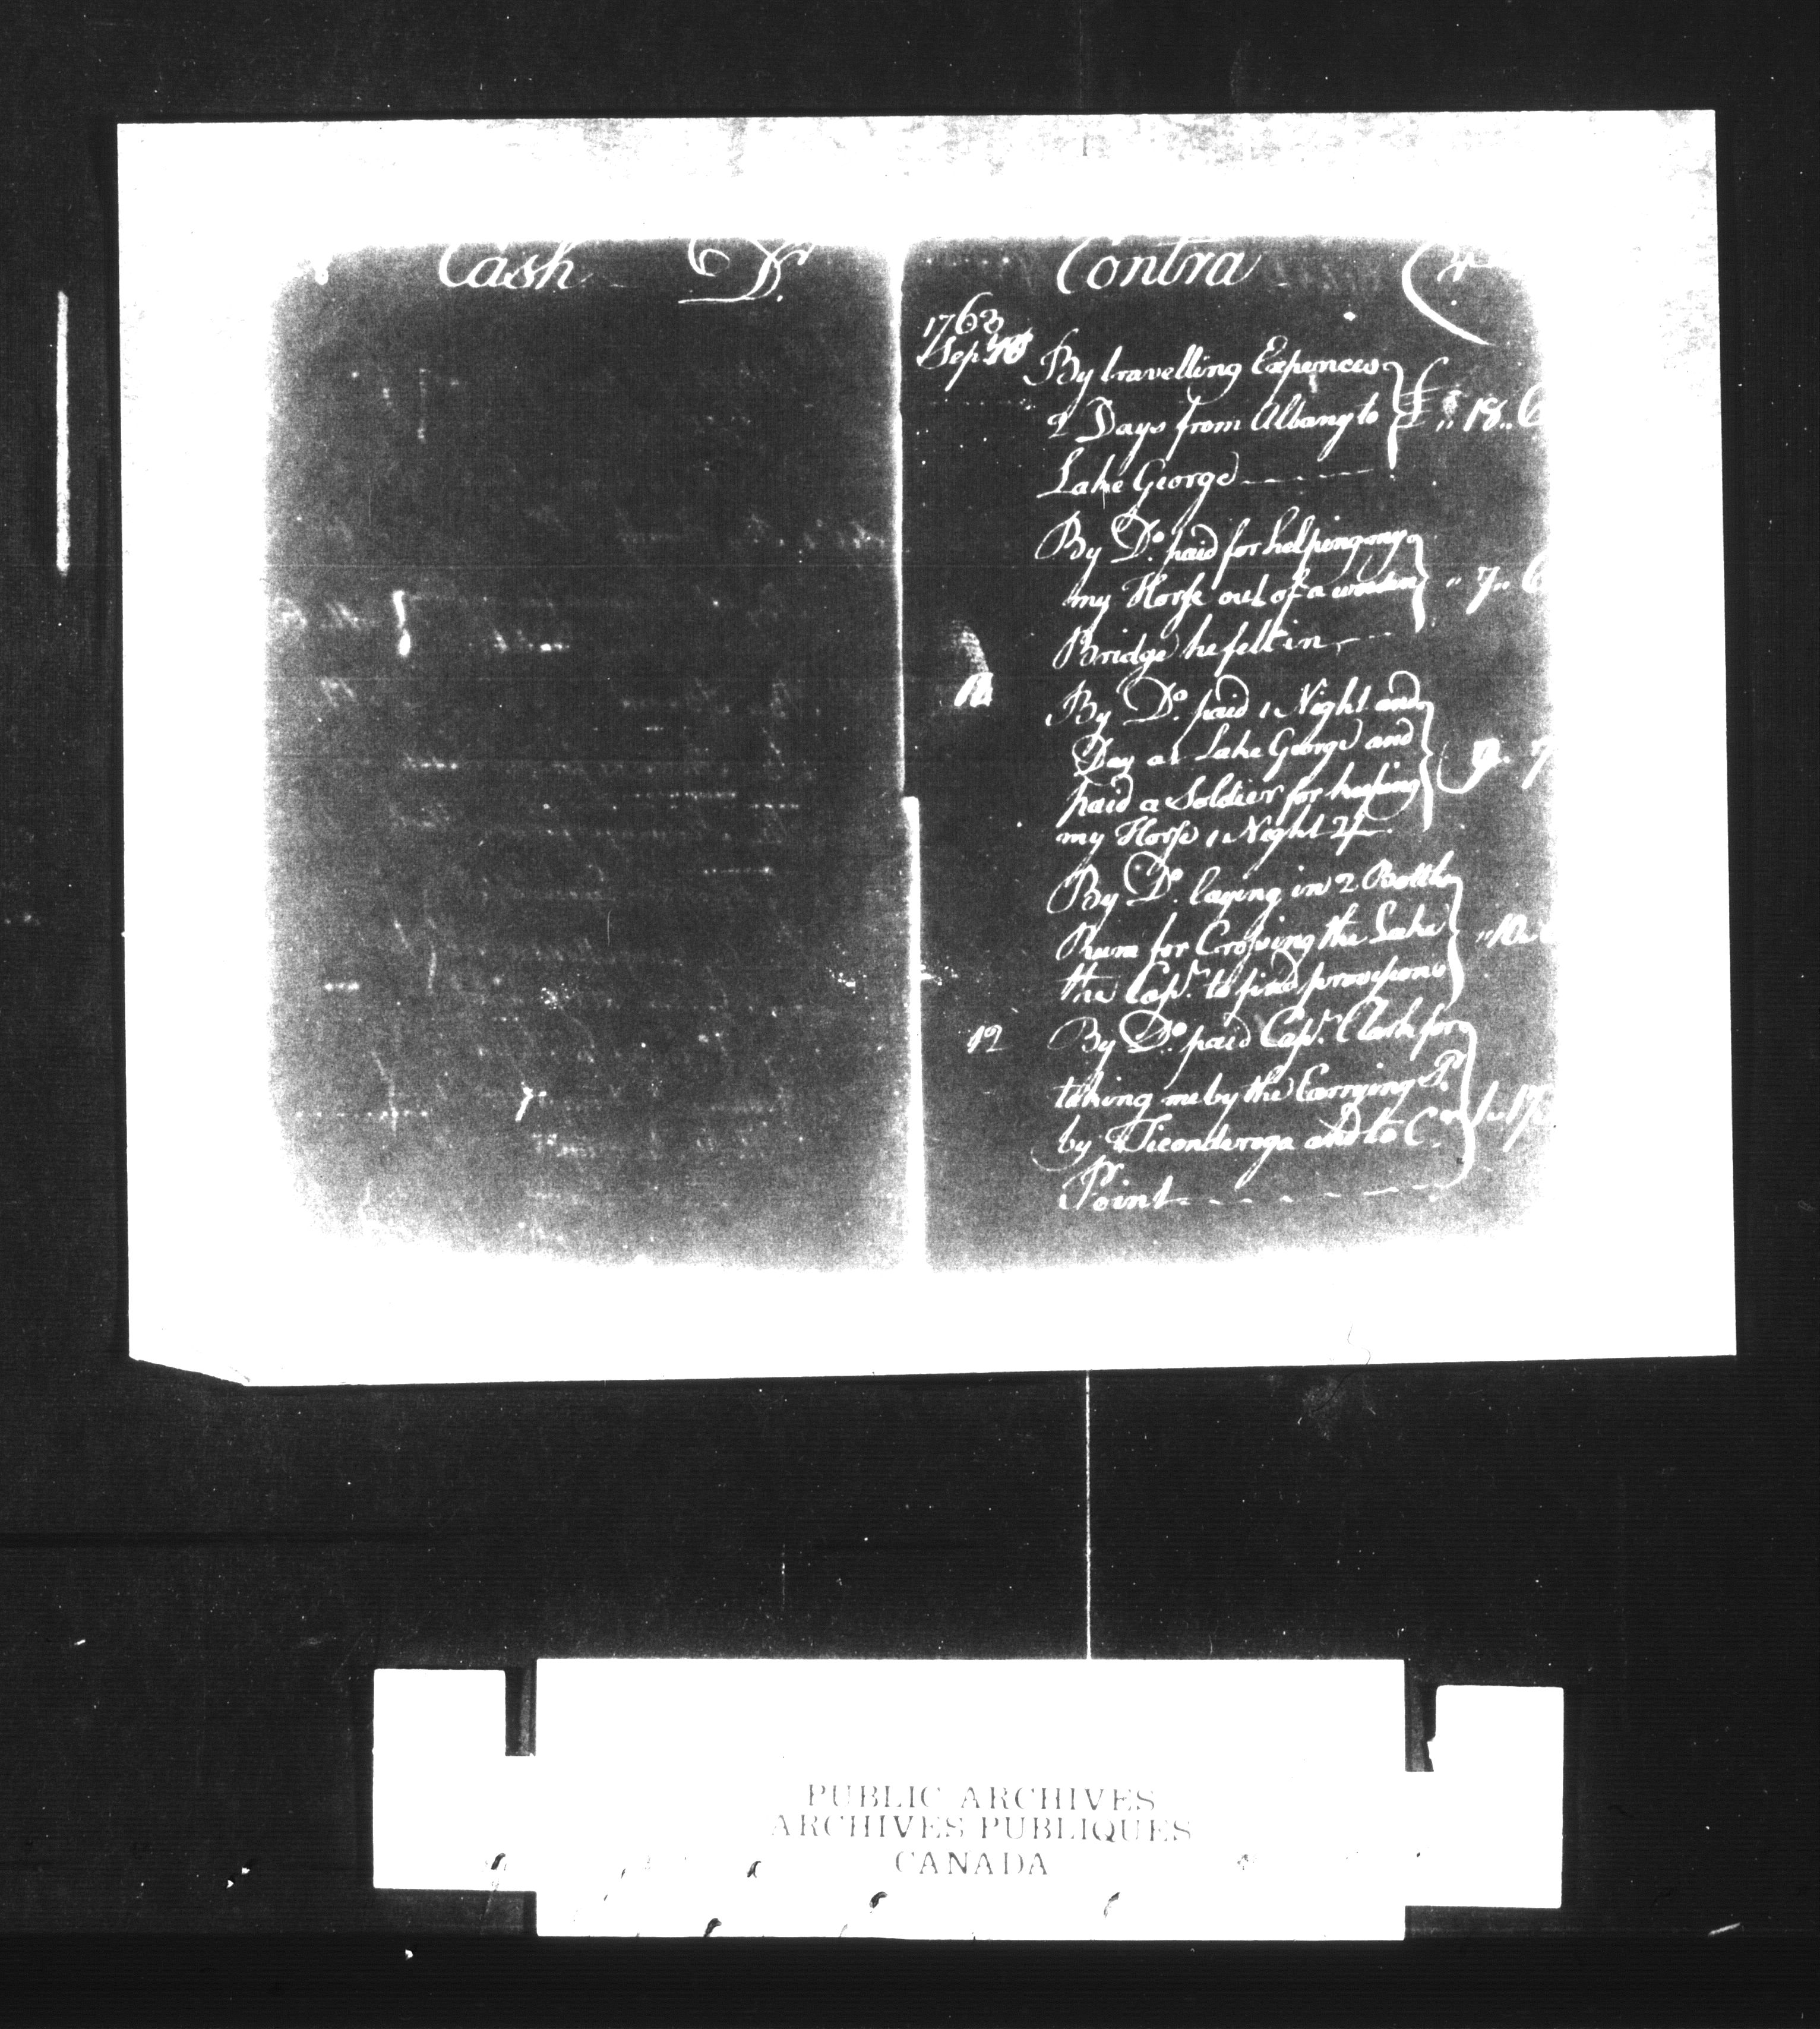 Cash Dr.
Contra Cr
1763
Sep 10
By travelling Expences
2 Days from Albany to £ „ 18 „ 6
Lake George
By Do. paid for helping my
my Horse out of a wooden „ 7 „ 6
Bridge he fell in
By Do. paid 1 Night and
Day at Lake George and 9 „ 7
paid a Soldier for keeping
my Horse 1 Night 2/
By Do. laying in 2 Bottles
Rum for Crossing the Lake „ 10
the Capt. to find provisions
12 By Do. paid Capt. Clark for
taking me by the Carrying P.
by Ticonderoga and to C. 1 „ 17
Point
PUBLIC ARCHIVES
ARCHIVES PUBLIQUES
CANADA